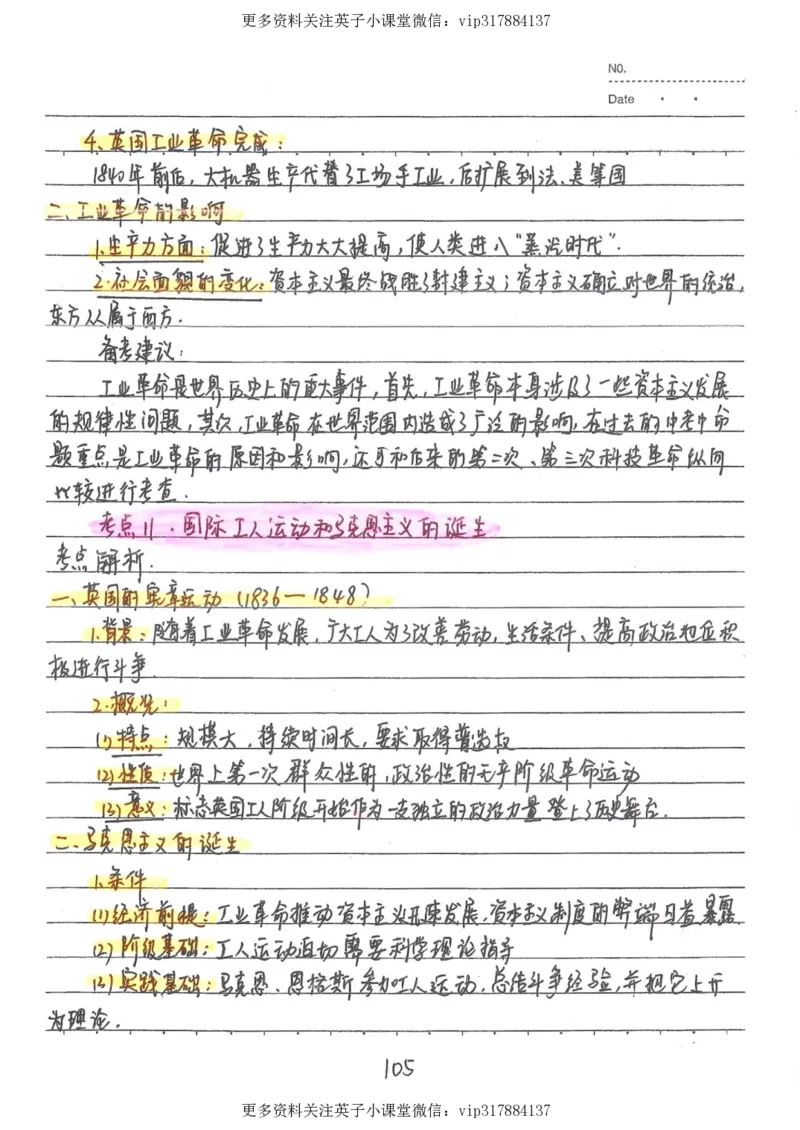 更多资料关注英子小课堂微信：vip317884137
NO.
Date
4、英国工业革命完成：
1840年前后，大机器生产代替了工场手工业，后扩展到法、美等国
二、工业革命的影响
1.生产力方面：促进了生产力大大提高，使人类进入“蒸汽时代”.
2.社会面貌的变化：资本主义最终战胜了封建主义；资本主义确立对世界的统治，
东方从属于西方.
备考建议：
工业革命是世界历史上的重大事件，首先，工业革命本身涉及了一些资本主义发展
的规律性问题，其次，工业革命在世界范围内造成了广泛的影响，在过去的中考中命
题重点是工业革命的原因和影响，还可和后来的第二次、第三次科技革命纵向
比较进行考查.
考点11.国际工人运动和马克思主义的诞生
考点解析.
一、英国的宪章运动（1836—1848）
1.背景：随着工业革命发展，广大工人为了改善劳动，生活条件、提高政治地位积
极进行斗争.
2.概况：
(1)特点：规模大，持续时间长，要求取得普选权
(2)性质：世界上第一次群众性的，政治性的无产阶级革命运动
(3)意义：标志英国工人阶级开始作为一支独立的政治力量登上了历史舞台.
二、马克思主义的诞生
1.条件
(1)经济前提：工业革命推动资本主义迅速发展，资本主义制度的弊端日益暴露
(2)阶级基础：工人运动迫切需要科学理论指导
(3)实践基础：马克思、恩格斯参加工人运动，总结斗争经验，并把它上升
为理论.
105
更多资料关注英子小课堂微信：vip317884137